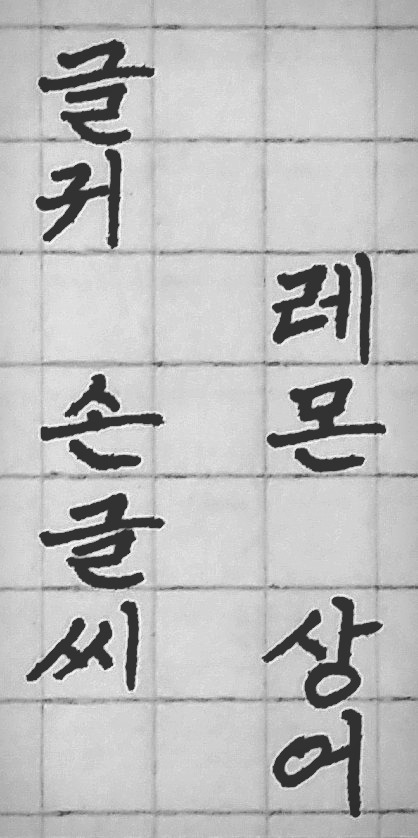 글귀 손글씨
레몬 상어